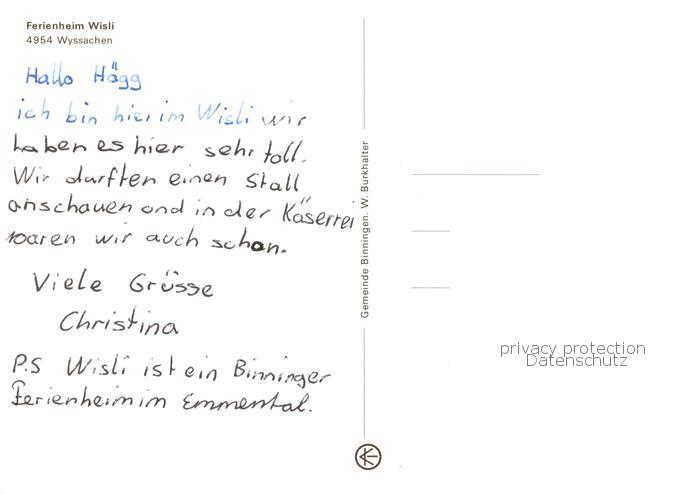 Ferienheim Wisli
4954 Wyssachen
Hallo Hägg
ich bin hier im Wisli wir
haben es hier sehr toll.
Wir durften einen Stall
anschauen ond in der Käserrei
waren wir auch schon.
Viele Grüsse
Christina
P.S Wisli ist ein Binninger
Ferienheim im Emmental.
Gemeinde Binningen. W. Burkhalter
privacy protection
Datenschutz